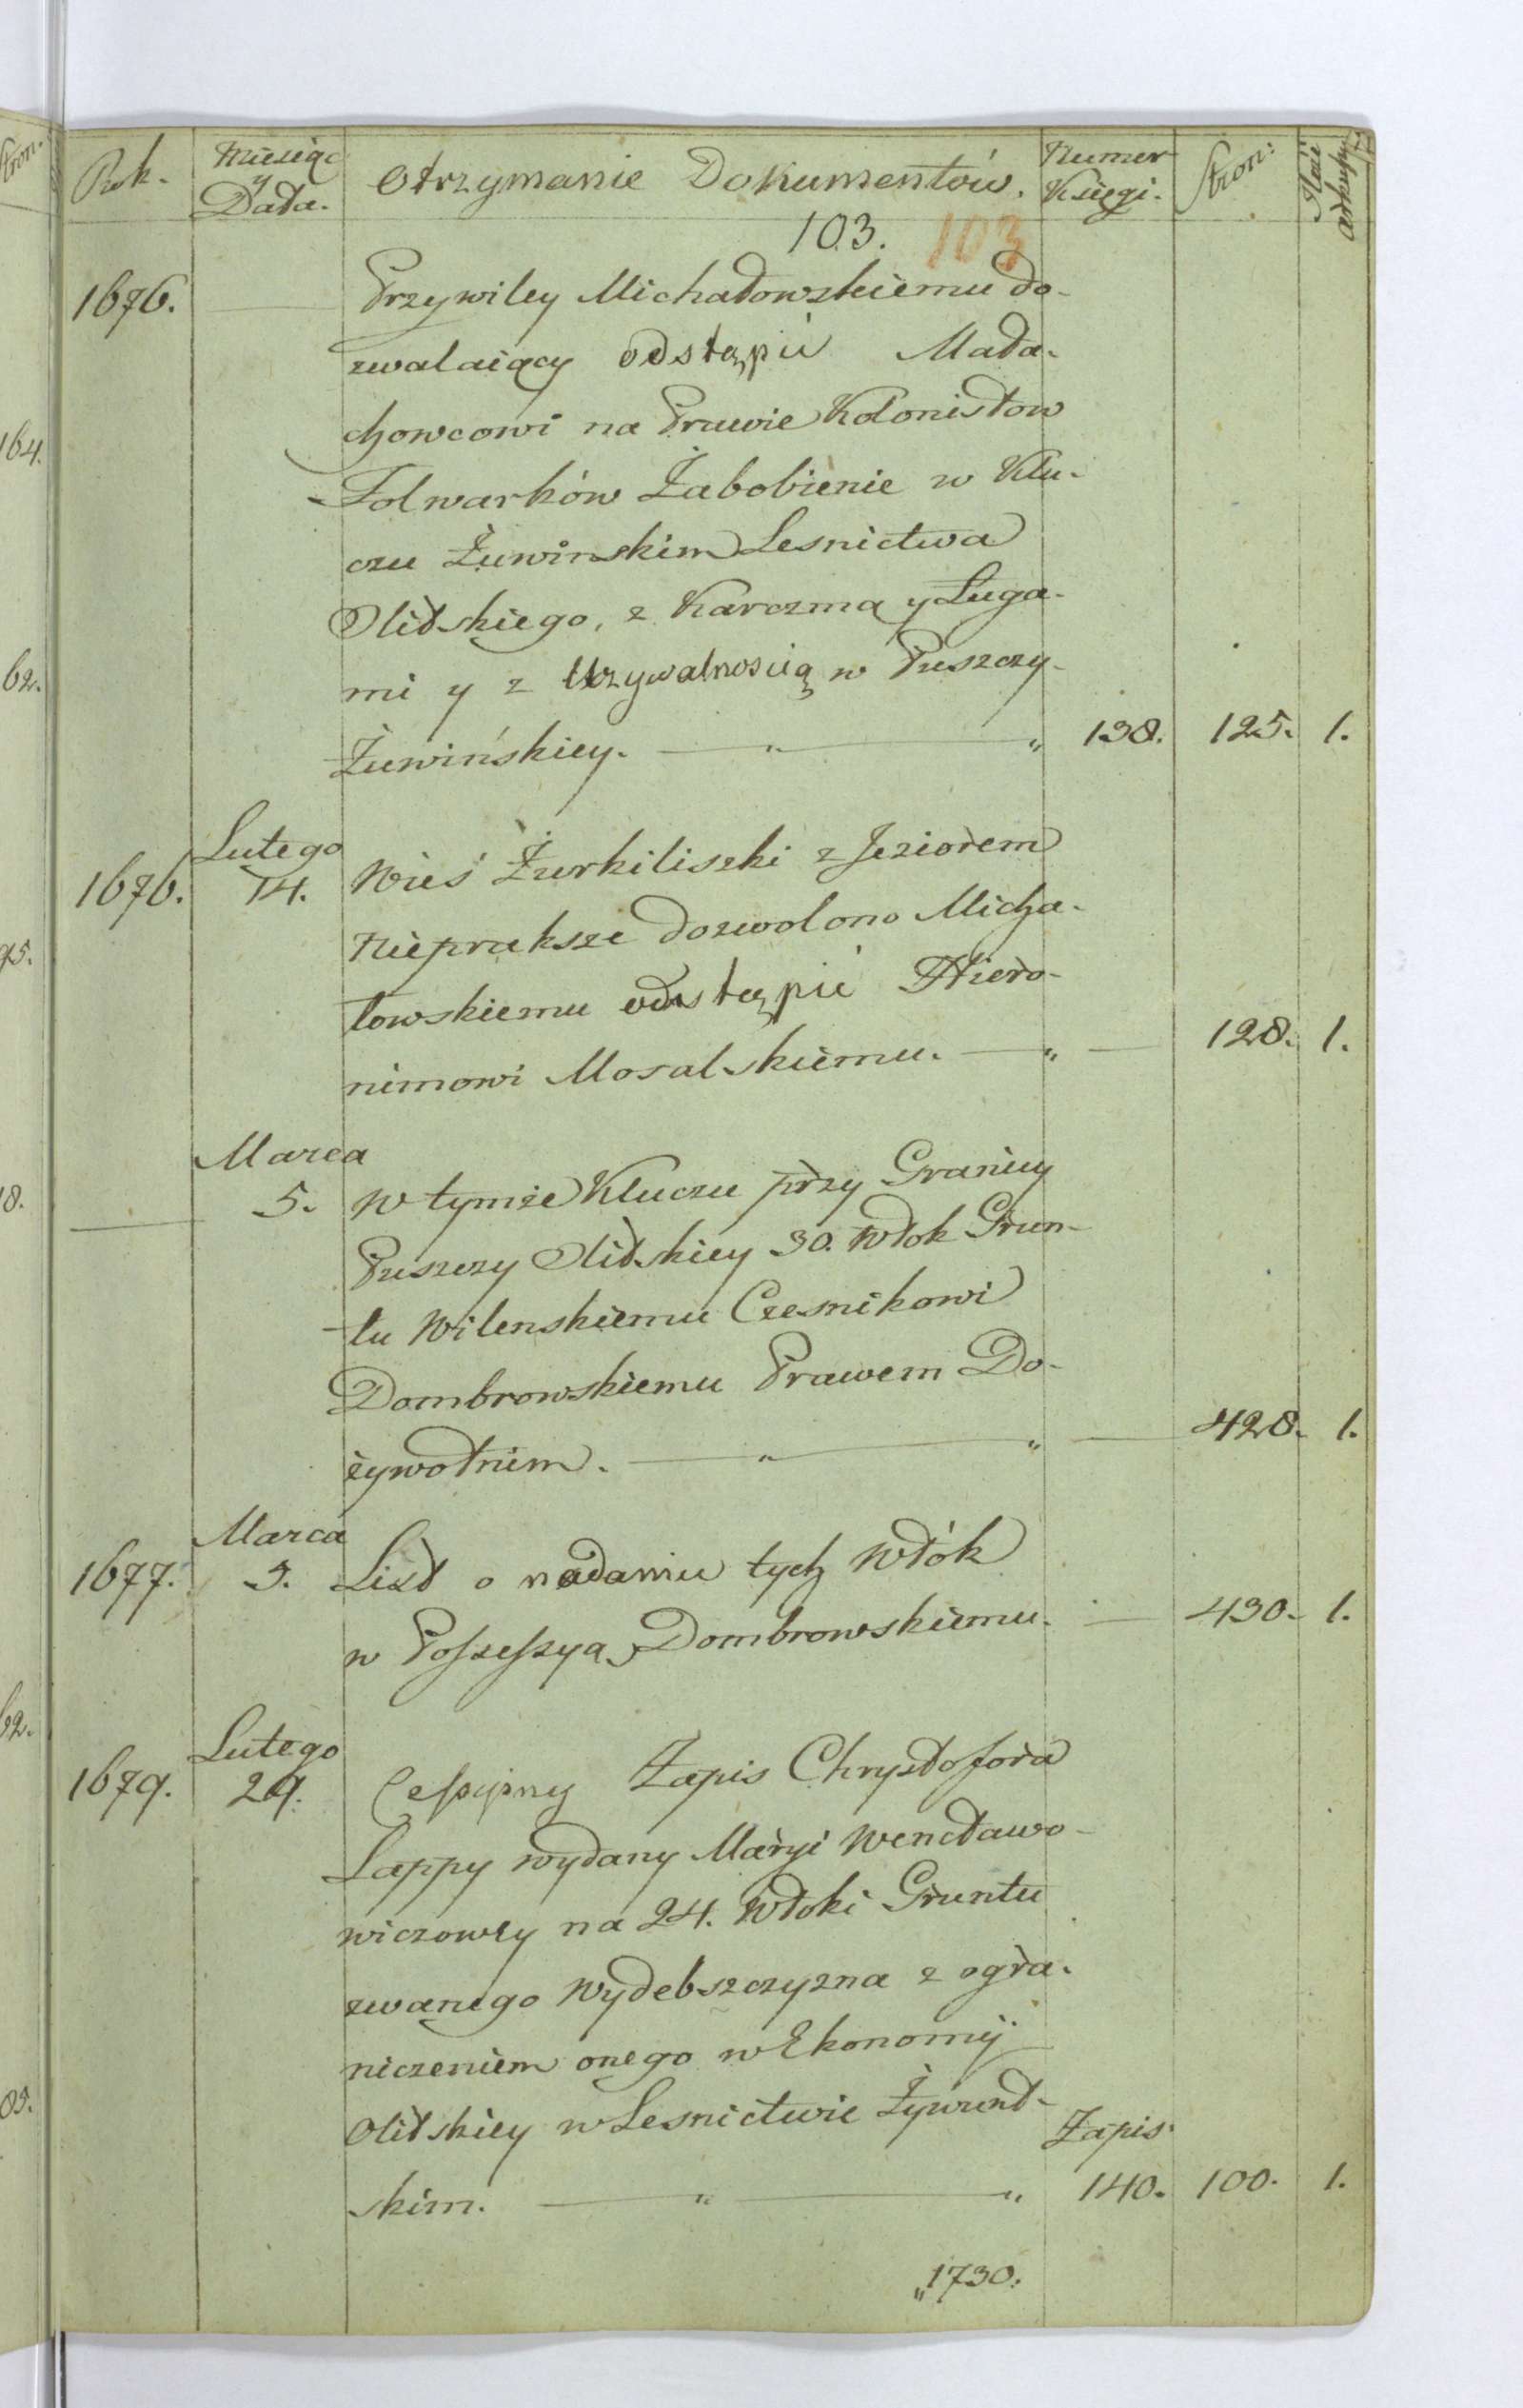 Rok. Miesiąc y Data. Otrzymanie Dokumentów. Numer Księgi. Stron: Ilość
103. 103
1676. Przywiley Michałowskiemu do-
zwalaiący odstąpić Mała-
chowcowi na Prawie Kolonistow
Folwarków Żabobienie w Klu-
czu Żuwinskim Lesnictwa
Olitskiego, z Karczmą y Ługa-
mi y z Używalnoscią w Puszczy
Żuwińskiey. 138. 125. 1.
1676. Lutego 14. Wieś Żurkiliszki z Jeziorem
Niepraksze dozwolono Micha-
łowskiemu odstąpić Hiero-
nimowi Mosalskiemu. 128. 1.
Marca 5. W tymże Kluczu przy Granicy
Puszczy Olitskiey 30. Włok Grun-
tu Wilenskiemu Czesnikowi
Dombrowskiemu Prawem Do-
żywotniem. 428. 1.
1677. Marca 5. List o nadaniu tych Włók
w Possessyą Dombrowskiemu. 430. 1.
1679. Lutego 29. Cessyjny Zapis Chrystofora
Łappy wydany Maryi Wencławo-
wiczowey na 24. Włoki Gruntu
zwanego Wydebszczyzna z ogra-
niczeniem onego w Ekonomij
Olitskiey w Lesnictwie Żywunt-
skim. Zapis 140. 100. 1.
„1730.